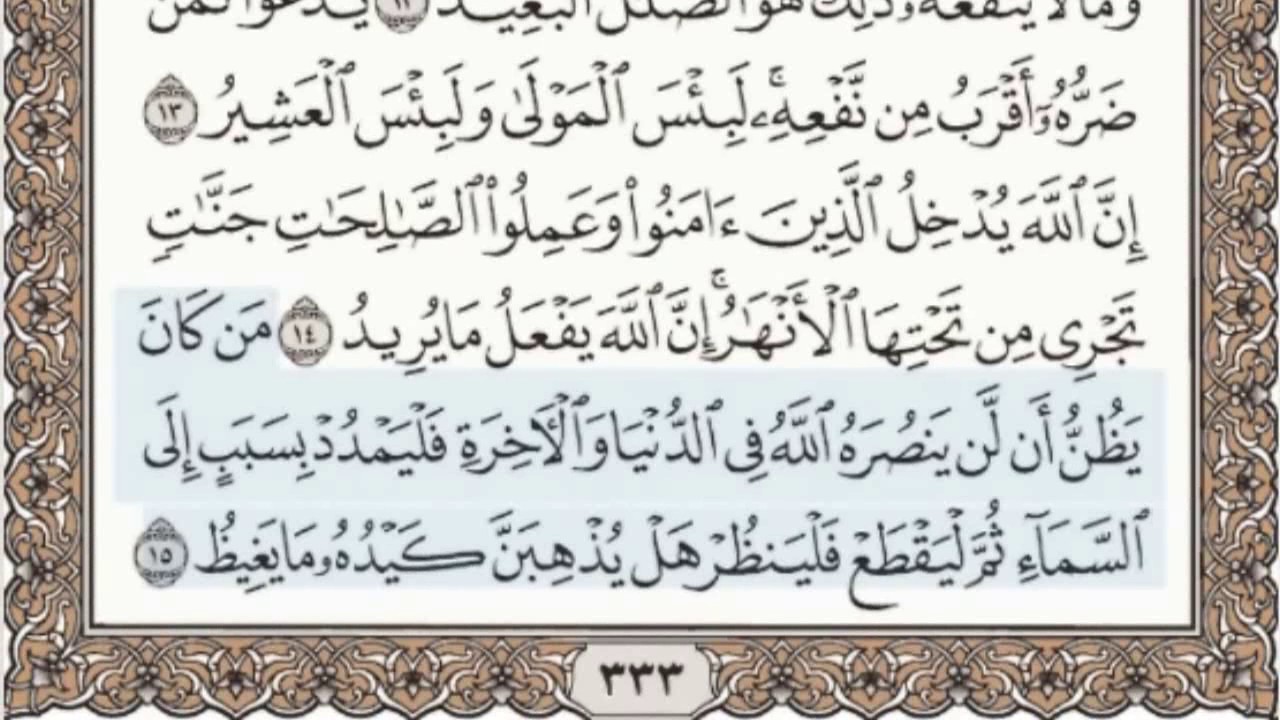 وَمَا لَا يَنفَعُهُۥ ذَٰلِكَ هُوَ ٱلضَّلَٰلُ ٱلْبَعِيدُ ١٢ يَدْعُوا۟ لَمَن
ضَرُّهُۥٓ أَقْرَبُ مِن نَّفْعِهِۦ ۚ لَبِئْسَ ٱلْمَوْلَىٰ وَلَبِئْسَ ٱلْعَشِيرُ ١٣
إِنَّ ٱللَّهَ يُدْخِلُ ٱلَّذِينَ ءَامَنُوا۟ وَعَمِلُوا۟ ٱلصَّٰلِحَٰتِ جَنَّٰتٍ
تَجْرِى مِن تَحْتِهَا ٱلْأَنْهَٰرُ ۚ إِنَّ ٱللَّهَ يَفْعَلُ مَا يُرِيدُ ١٤ مَن كَانَ
يَظُنُّ أَن لَّن يَنصُرَهُ ٱللَّهُ فِى ٱلدُّنْيَا وَٱلْءَاخِرَةِ فَلْيَمْدُدْ بِسَبَبٍ إِلَى
ٱلسَّمَآءِ ثُمَّ لْيَقْطَعْ فَلْيَنظُرْ هَلْ يُذْهِبَنَّ كَيْدُهُۥ مَا يَغِيظُ ١٥
٣٣٣